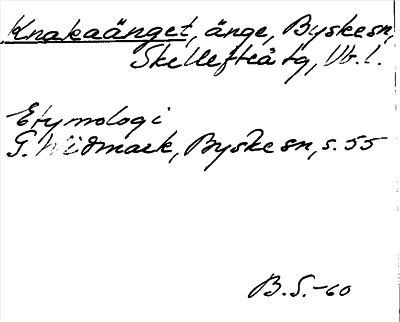 Knakaänget, änge, Byskesn,
Skellefteå tg, Vb.l.
Etymologi
G. Widmark, Byskesn, s. 55
B.S.-60